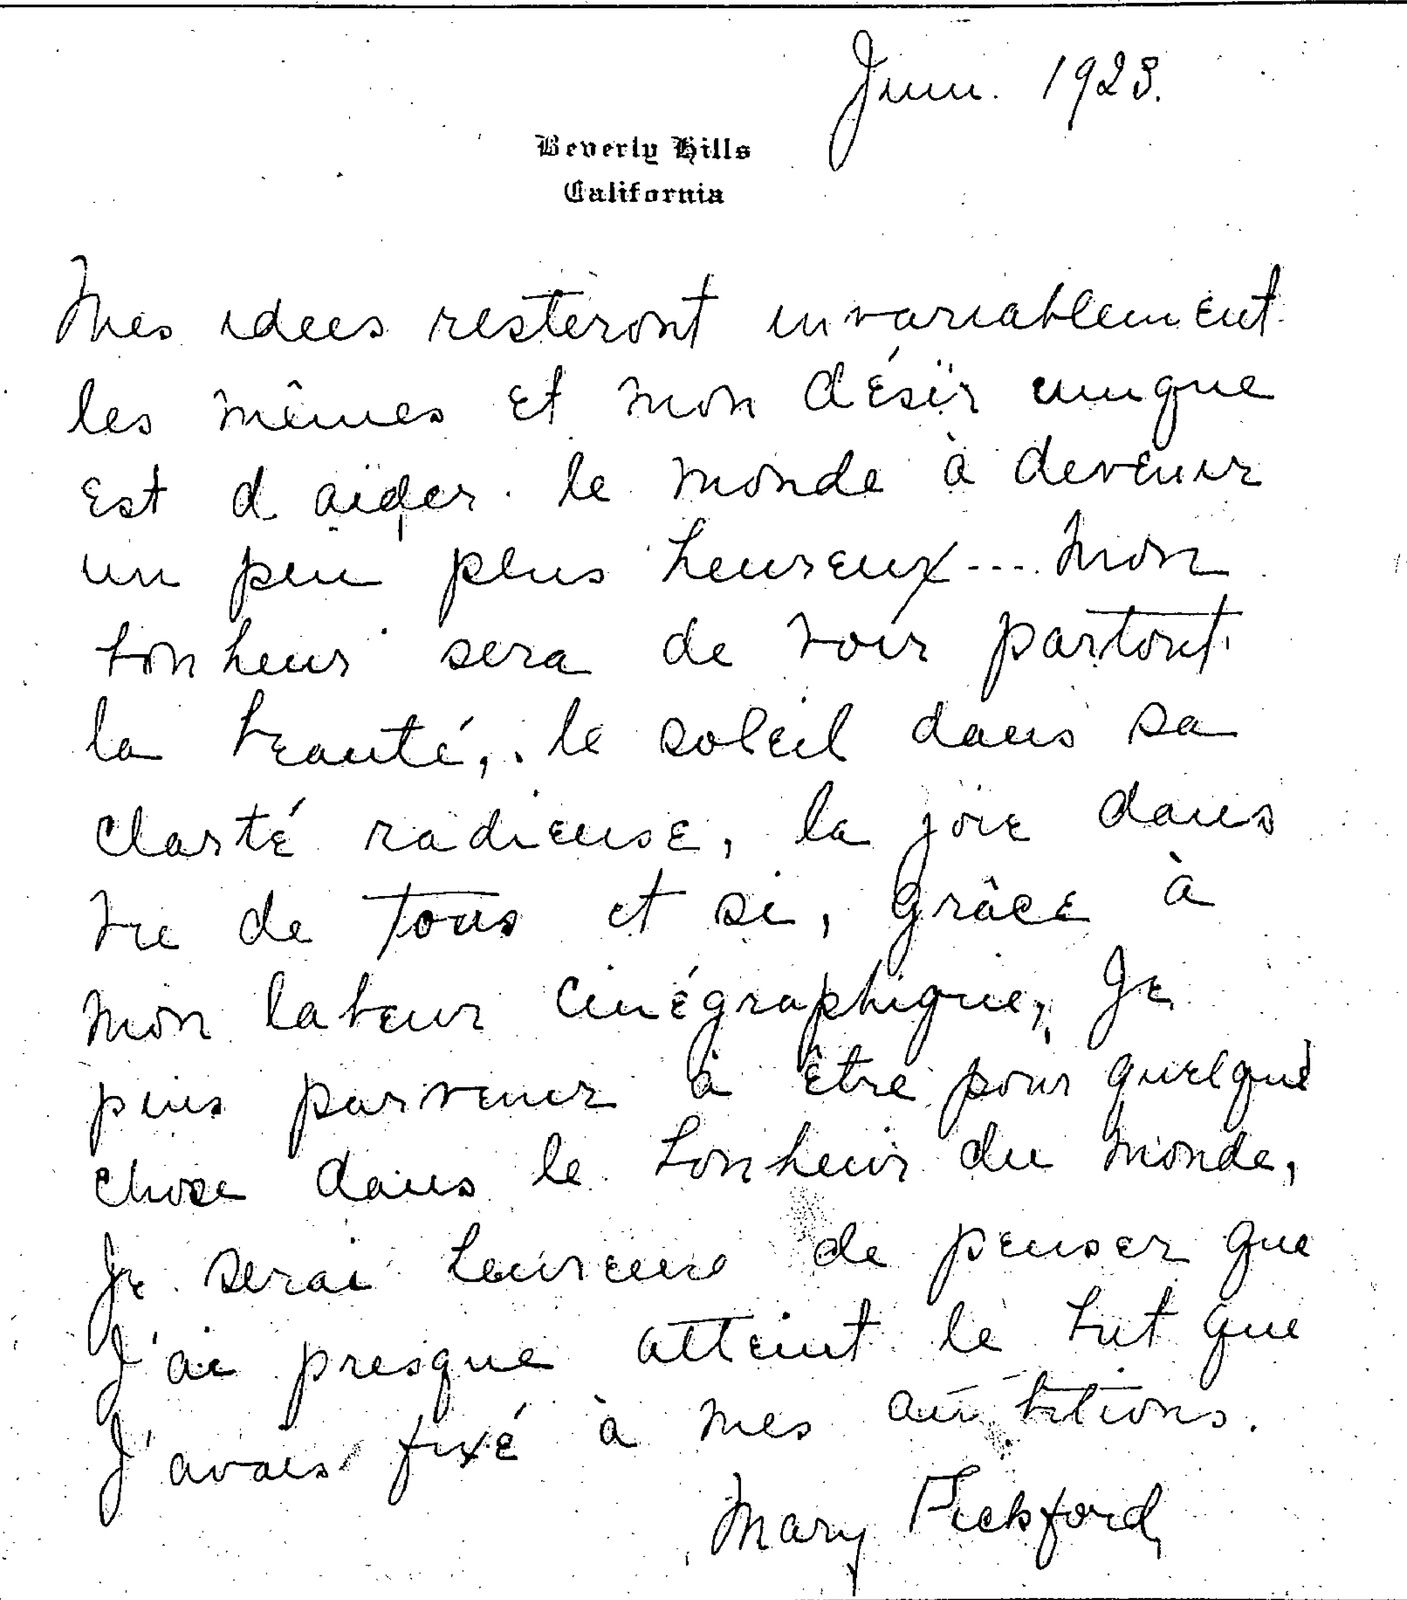 Juin. 1923.
Beverly Hills
California
Mes idees resteront invariablement
les mêmes et mon désir unique
est d aider le monde à devenir
un peu plus heureux .... Mon
bonheur sera de voir partout
la beauté, le soleil dans sa
clarté radieuse, la joie dans
vie de tous et si, grâce à
mon labeur cinégraphique, Je
puis parvenir à être pour quelque
chose dans le bonheur du monde,
Je serai heureuse de penser que
J'ai presque atteint le but que
J'avais fixé à mes ambitions.
Mary Pickford